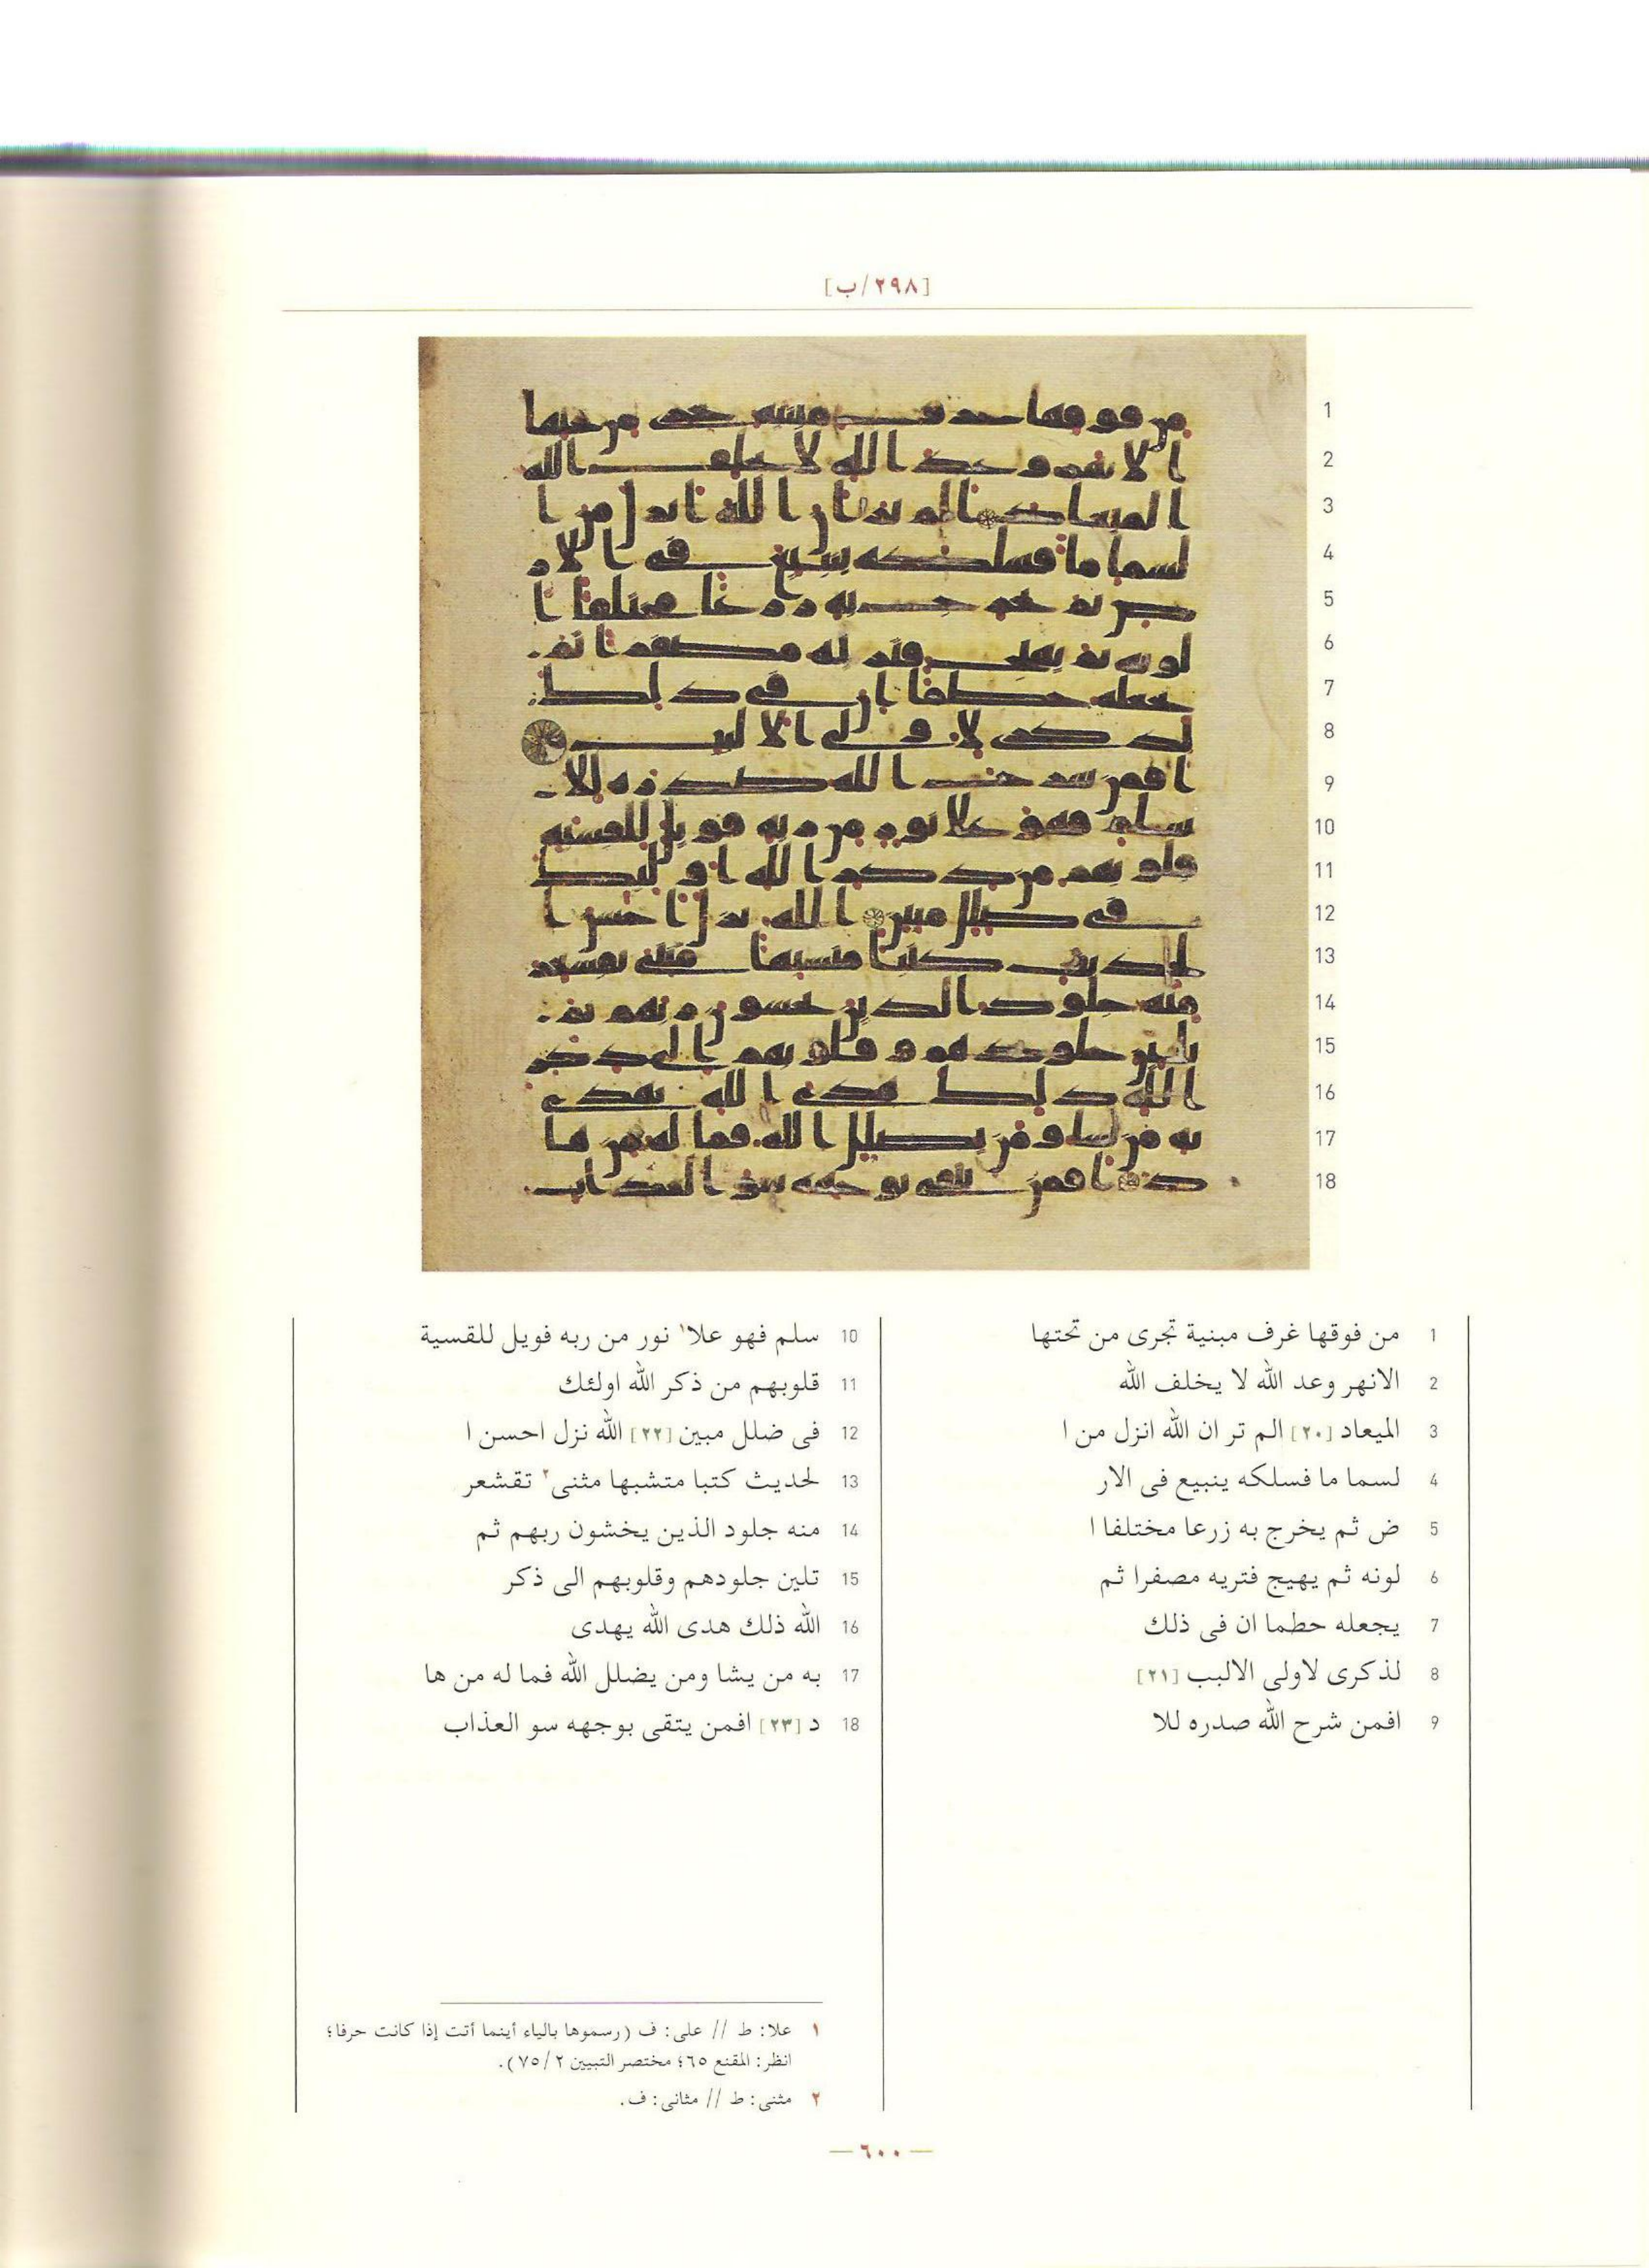 [٢٩٨/ب]
1 من فوقها غرف مبنية تجرى من تحتها
2 الانهر وعد الله لا يخلف الله
3 الميعاد [٢٠] الم تر ان الله انزل من ا
4 لسما ما فسلكه ينبيع فى الار
5 ض ثم يخرج به زرعا مختلفا ا
6 لونه ثم يهيج فتريه مصفرا ثم
7 يجعله حطما ان فى ذلك
8 لذكرى لاولى الالبب [٢١]
9 افمن شرح الله صدره للا
10 سلم فهو علا١ نور من ربه فويل للقسية
11 قلوبهم من ذكر الله اولئك
12 فى ضلل مبين [٢٢] الله نزل احسن ا
13 لحديث كتبا متشبها مثنى٢ تقشعر
14 منه جلود الذين يخشون ربهم ثم
15 تلين جلودهم وقلوبهم الى ذكر
16 الله ذلك هدى الله يهدى
17 به من يشا ومن يضلل الله فما له من ها
18 د [٢٣] افمن يتقى بوجهه سو العذاب
١ علا: ط // على: ف (رسموها بالياء أينما أتت إذا كانت حرفا؛
انظر: المقنع ٦٥؛ مختصر التبيين ٢/ ٧٥).
٢ مثنى: ط // مثانى: ف.
— ٦٠٠ —